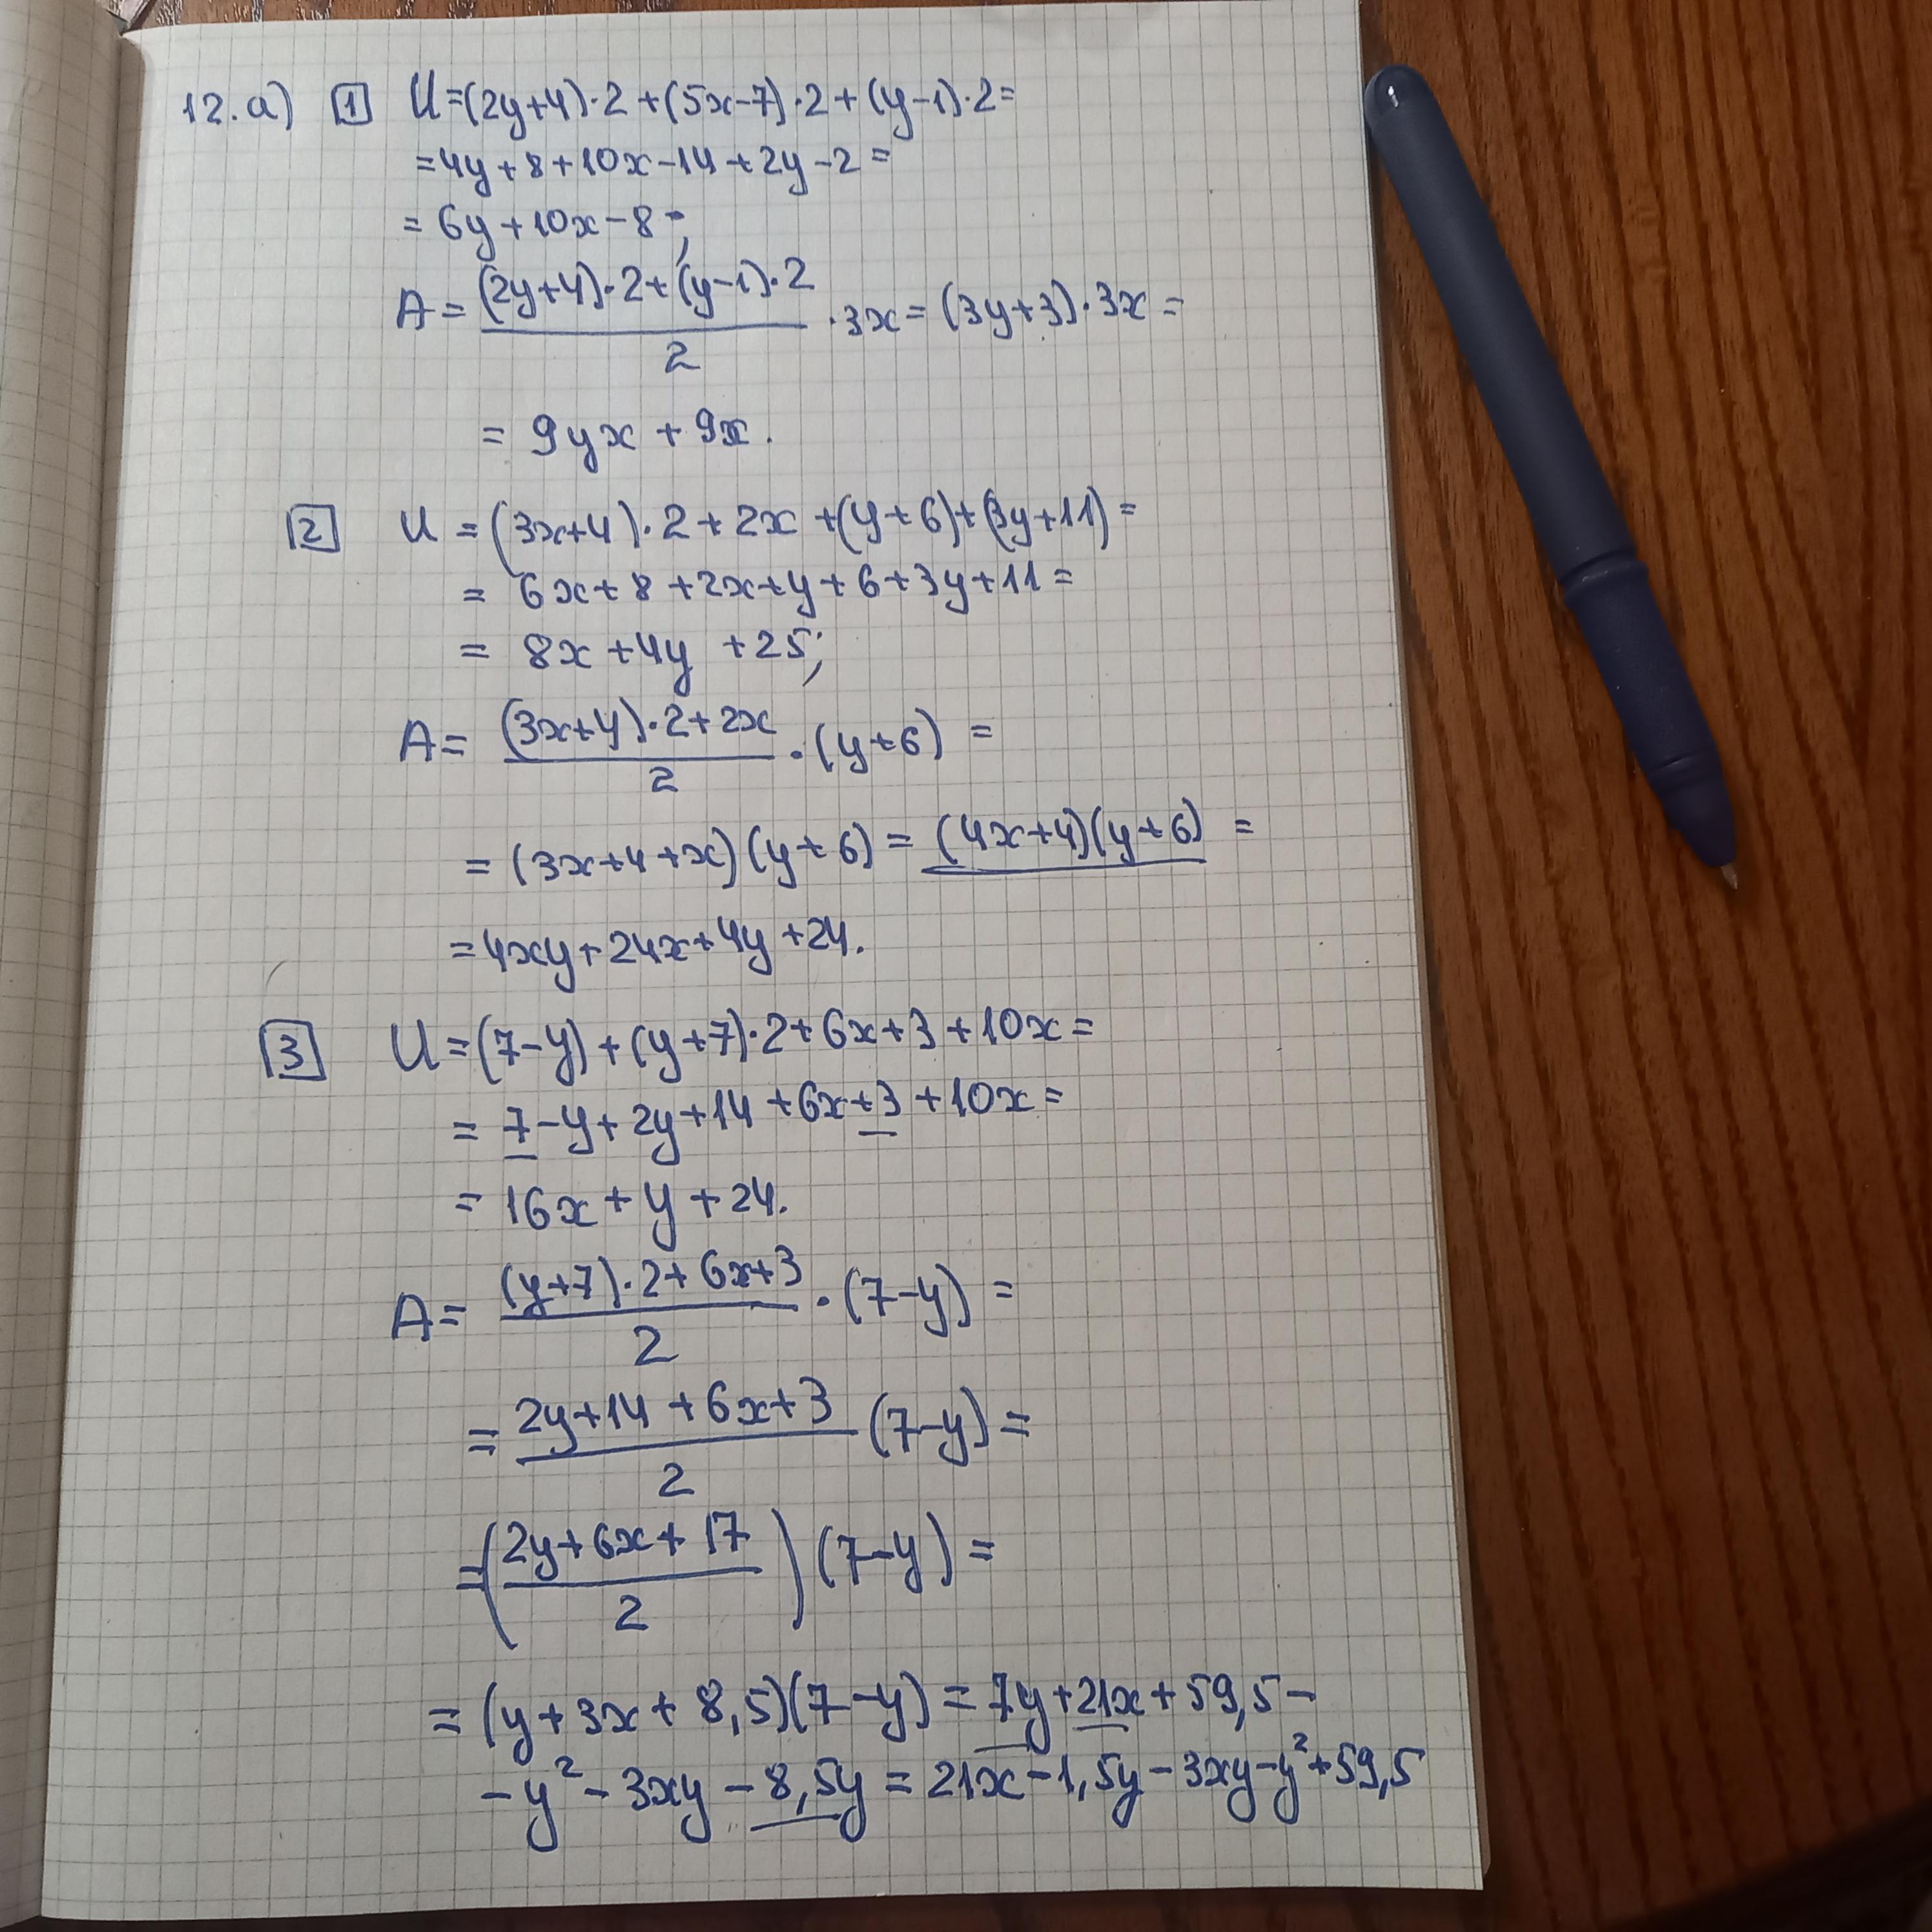 12. a) 1 U=(2y+4)·2+(5x-7)·2+(y-1)·2=
=4y+8+10x-14+2y-2=
= 6y+10x-8;
A = ((2y+4)·2+(y-1)·2)/2 · 3x = (3y+3)·3x =
= 9yx + 9x.
2 U = (3x+4)·2+2x+(y+6)+(3y+11)=
= 6x+8+2x+y+6+3y+11=
= 8x+4y+25;
A = ((3x+4)·2+2x)/2 · (y+6) =
= (3x+4+x)(y+6) = (4x+4)(y+6) =
=4xy+24x+4y+24.
3 U=(7-y)+(y+7)·2+6x+3+10x=
= 7-y+2y+14+6x+3+10x=
= 16x+y+24.
A = ((y+7)·2+6x+3)/2 · (7-y) =
= (2y+14+6x+3)/2 (7-y) =
=((2y+6x+17)/2)(7-y) =
= (y+3x+8,5)(7-y) = 7y+21x+59,5-
-y²-3xy-8,5y = 21x-1,5y-3xy-y²+59,5